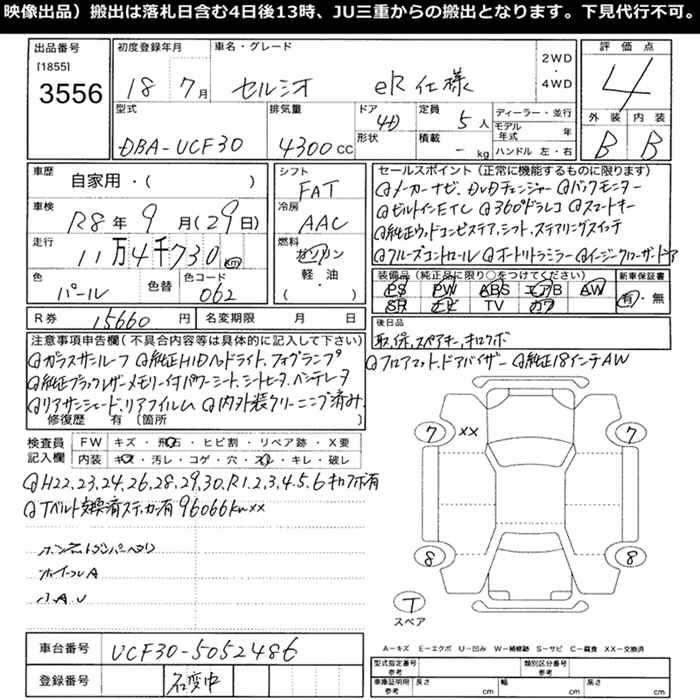 映像出品）搬出は落札日含む4日後13時、JU三重からの搬出となります。下見代行不可。
出品番号
[1855]
3556
初度登録年月
18年 7月
車名・グレード
セルシオ eR仕様
2WD
・
4WD
評価点
4
外装 内装
B B
型式
DBA-UCF30
排気量
4300cc
ドア
4D
形状
定員
5人
積載
- kg
ディーラー・並行
モデル年式 年
ハンドル 左・右
車歴
自家用・( )
車検
R8年 9月(29日)
走行
11万4千730km
色
パール
色替
色コード
062
シフト
FAT
冷房
AAC
燃料
ガソリン
軽・油
( )
R券 15660円
名変期限 月 日
セールスポイント(正常に機能するものに限ります)
@メーカーナビ、DVDチェンジャー @バックモニター
@ビルトインETC @360°ドラレコ @スマートキー
@純正ウッドコンビステア、シフト、ステアリングスイッチ
@クルーズコントロール @オートリトラミラー @イージークローザードア
装備品(純正品に限り○をつけてください)
PS PW ABS エアB AW
SR ナビ TV カワ
新車保証書
有・無
後日品
取、保、スペアキー、キロクボ
@フロアマット、ドアバイザー @純正18インチAW
注意事項申告欄(不具合内容等は具体的に記入してください)
@ガラスサンルーフ @純正HIDヘッドライト、フォグランプ
@純正ブラックレザーメモリー付パワーシート、シートヒータ、ベンチレータ
@リアサンシェード、リアフィルム @内外装クリーニング済み
修復歴 有〔箇所 〕
検査員記入欄
FW キズ・飛石・ヒビ割・リペア跡・X要
内装 キズ・汚レ・コゲ・穴・スレ・キレ・破レ
@H22.23.24.26.28.29.30.R1.2.3.4.5.6キロクボ有
@Tベルト交換済ステッカー有96066km
××
ホイールA
小A.U
7 ×× 7
8 8
T
スペア
A－キズ E－エクボ U－凹み W－補修跡 S－サビ C－腐食 XX－交換済
車台番号 UCF30-5052486
登録番号 名変中
型式指定番号
参考
類別区分番号
参考
車庫証明用
参考
長さ cm
幅 cm
高さ cm